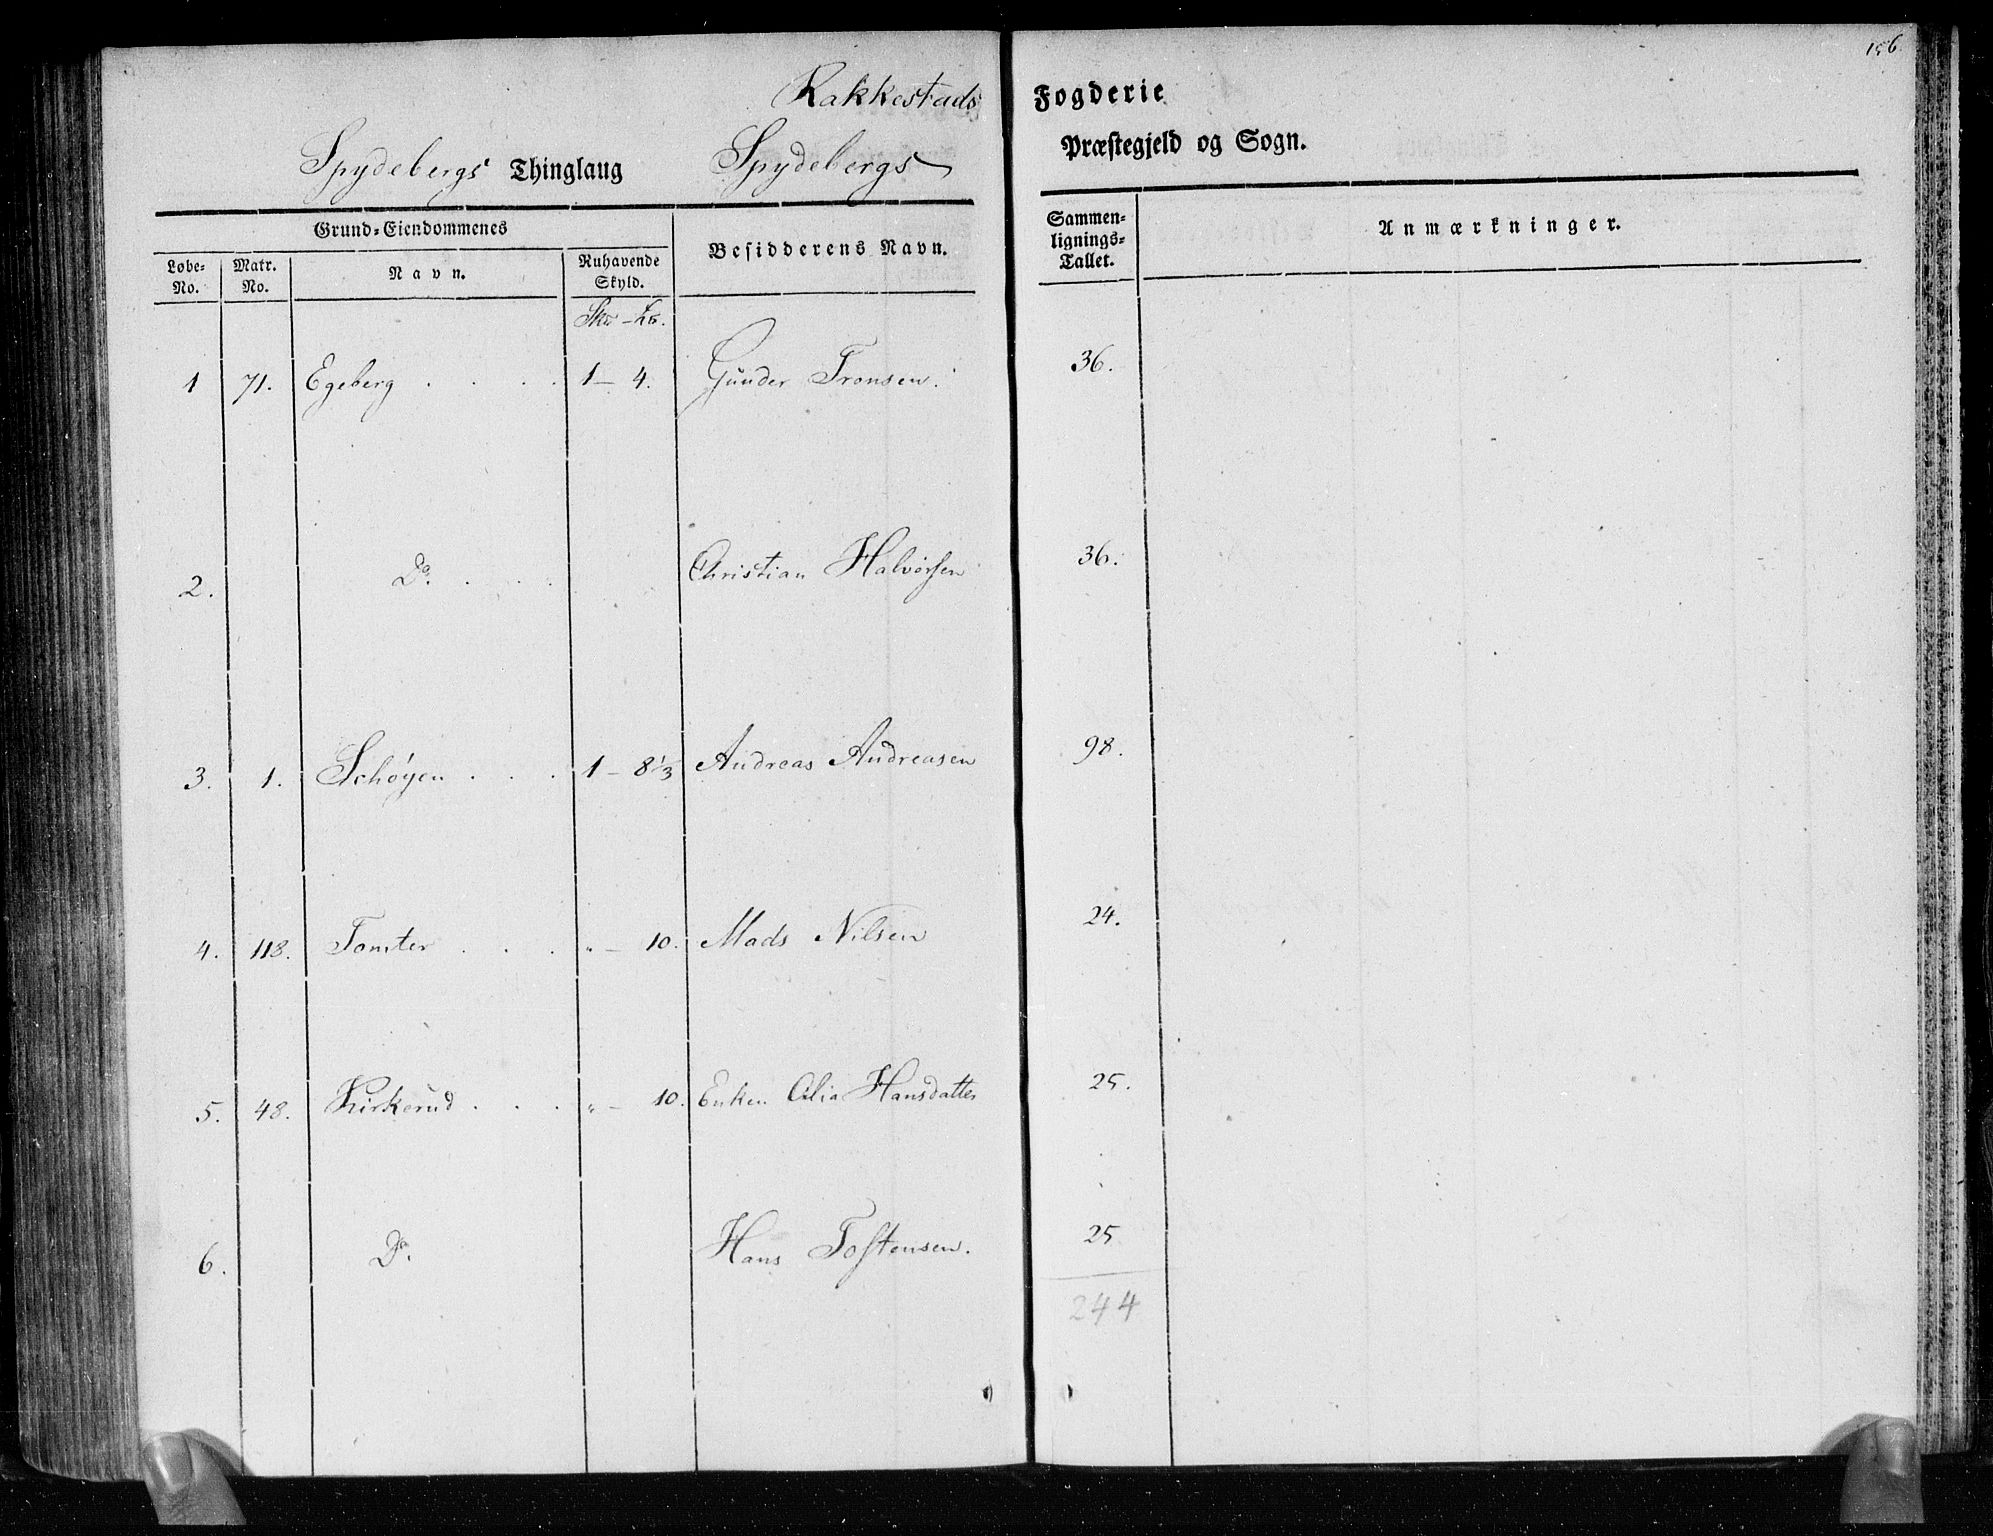 156
Rakkestads Fogderie
Spydebergs Thinglaug Spydebergs Præstegjeld og Sogn.
Grund-Eiendommenes
Løbe-No. Matr. No. Navn. Nuhavende Skyld. Besidderens Navn. Sammen-lignings-Tallet. Anmærkninger.
1 71. Egeberg . . . . 1 – 4. Gunder Tronsen. 36.
2. Do. . . . Christian Halvorsen 36.
3. 1. Schøyen . . . 1 – 8 1/3 Andreas Andreasen 98.
4. 118. Tomter . . . " – 10. Mads Nilsen 24.
5. 48. Kirkerud . . . " – 10. Enken Cilia Hansdatter 25.
6. Do. Hans Tostensen. 25
244